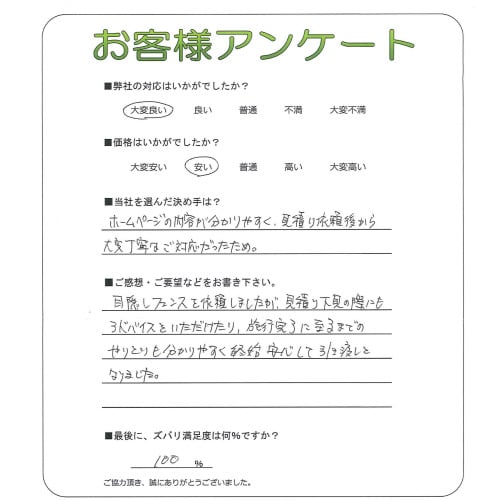 お客様アンケート
■弊社の対応はいかがでしたか？
大変良い 良い 普通 不満 大変不満
■価格はいかがでしたか？
大変安い 安い 普通 高い 大変高い
■当社を選んだ決め手は？
ホームページの内容が分かりやすく、見積り依頼後から
大変丁寧なご対応だったため。
■ご感想・ご要望などをお書き下さい。
目隠しフェンスを依頼しましたが、見積り下見の際にも
アドバイスをいただけたり、施行完了に至るまでの
やりとりも分かりやすく終始安心して引き渡しと
なりました。
■最後に、ズバリ満足度は何%ですか？
100 %
ご協力頂き、誠にありがとうございました。